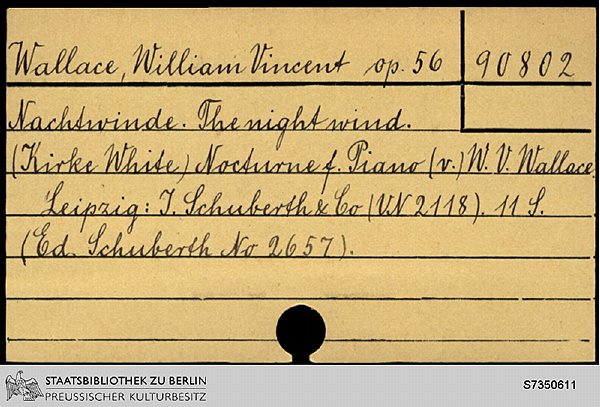 Wallace, William Vincent op. 56 90802
Nachtwinde. The night wind.
(Kirke White) Nocturne f. Piano (v.) W. V. Wallace.
Leipzig: J. Schuberth & Co (VN 2118). 11 S.
(Ed. Schuberth No 2657).
STAATSBIBLIOTHEK ZU BERLIN
PREUSSISCHER KULTURBESITZ
S7350611